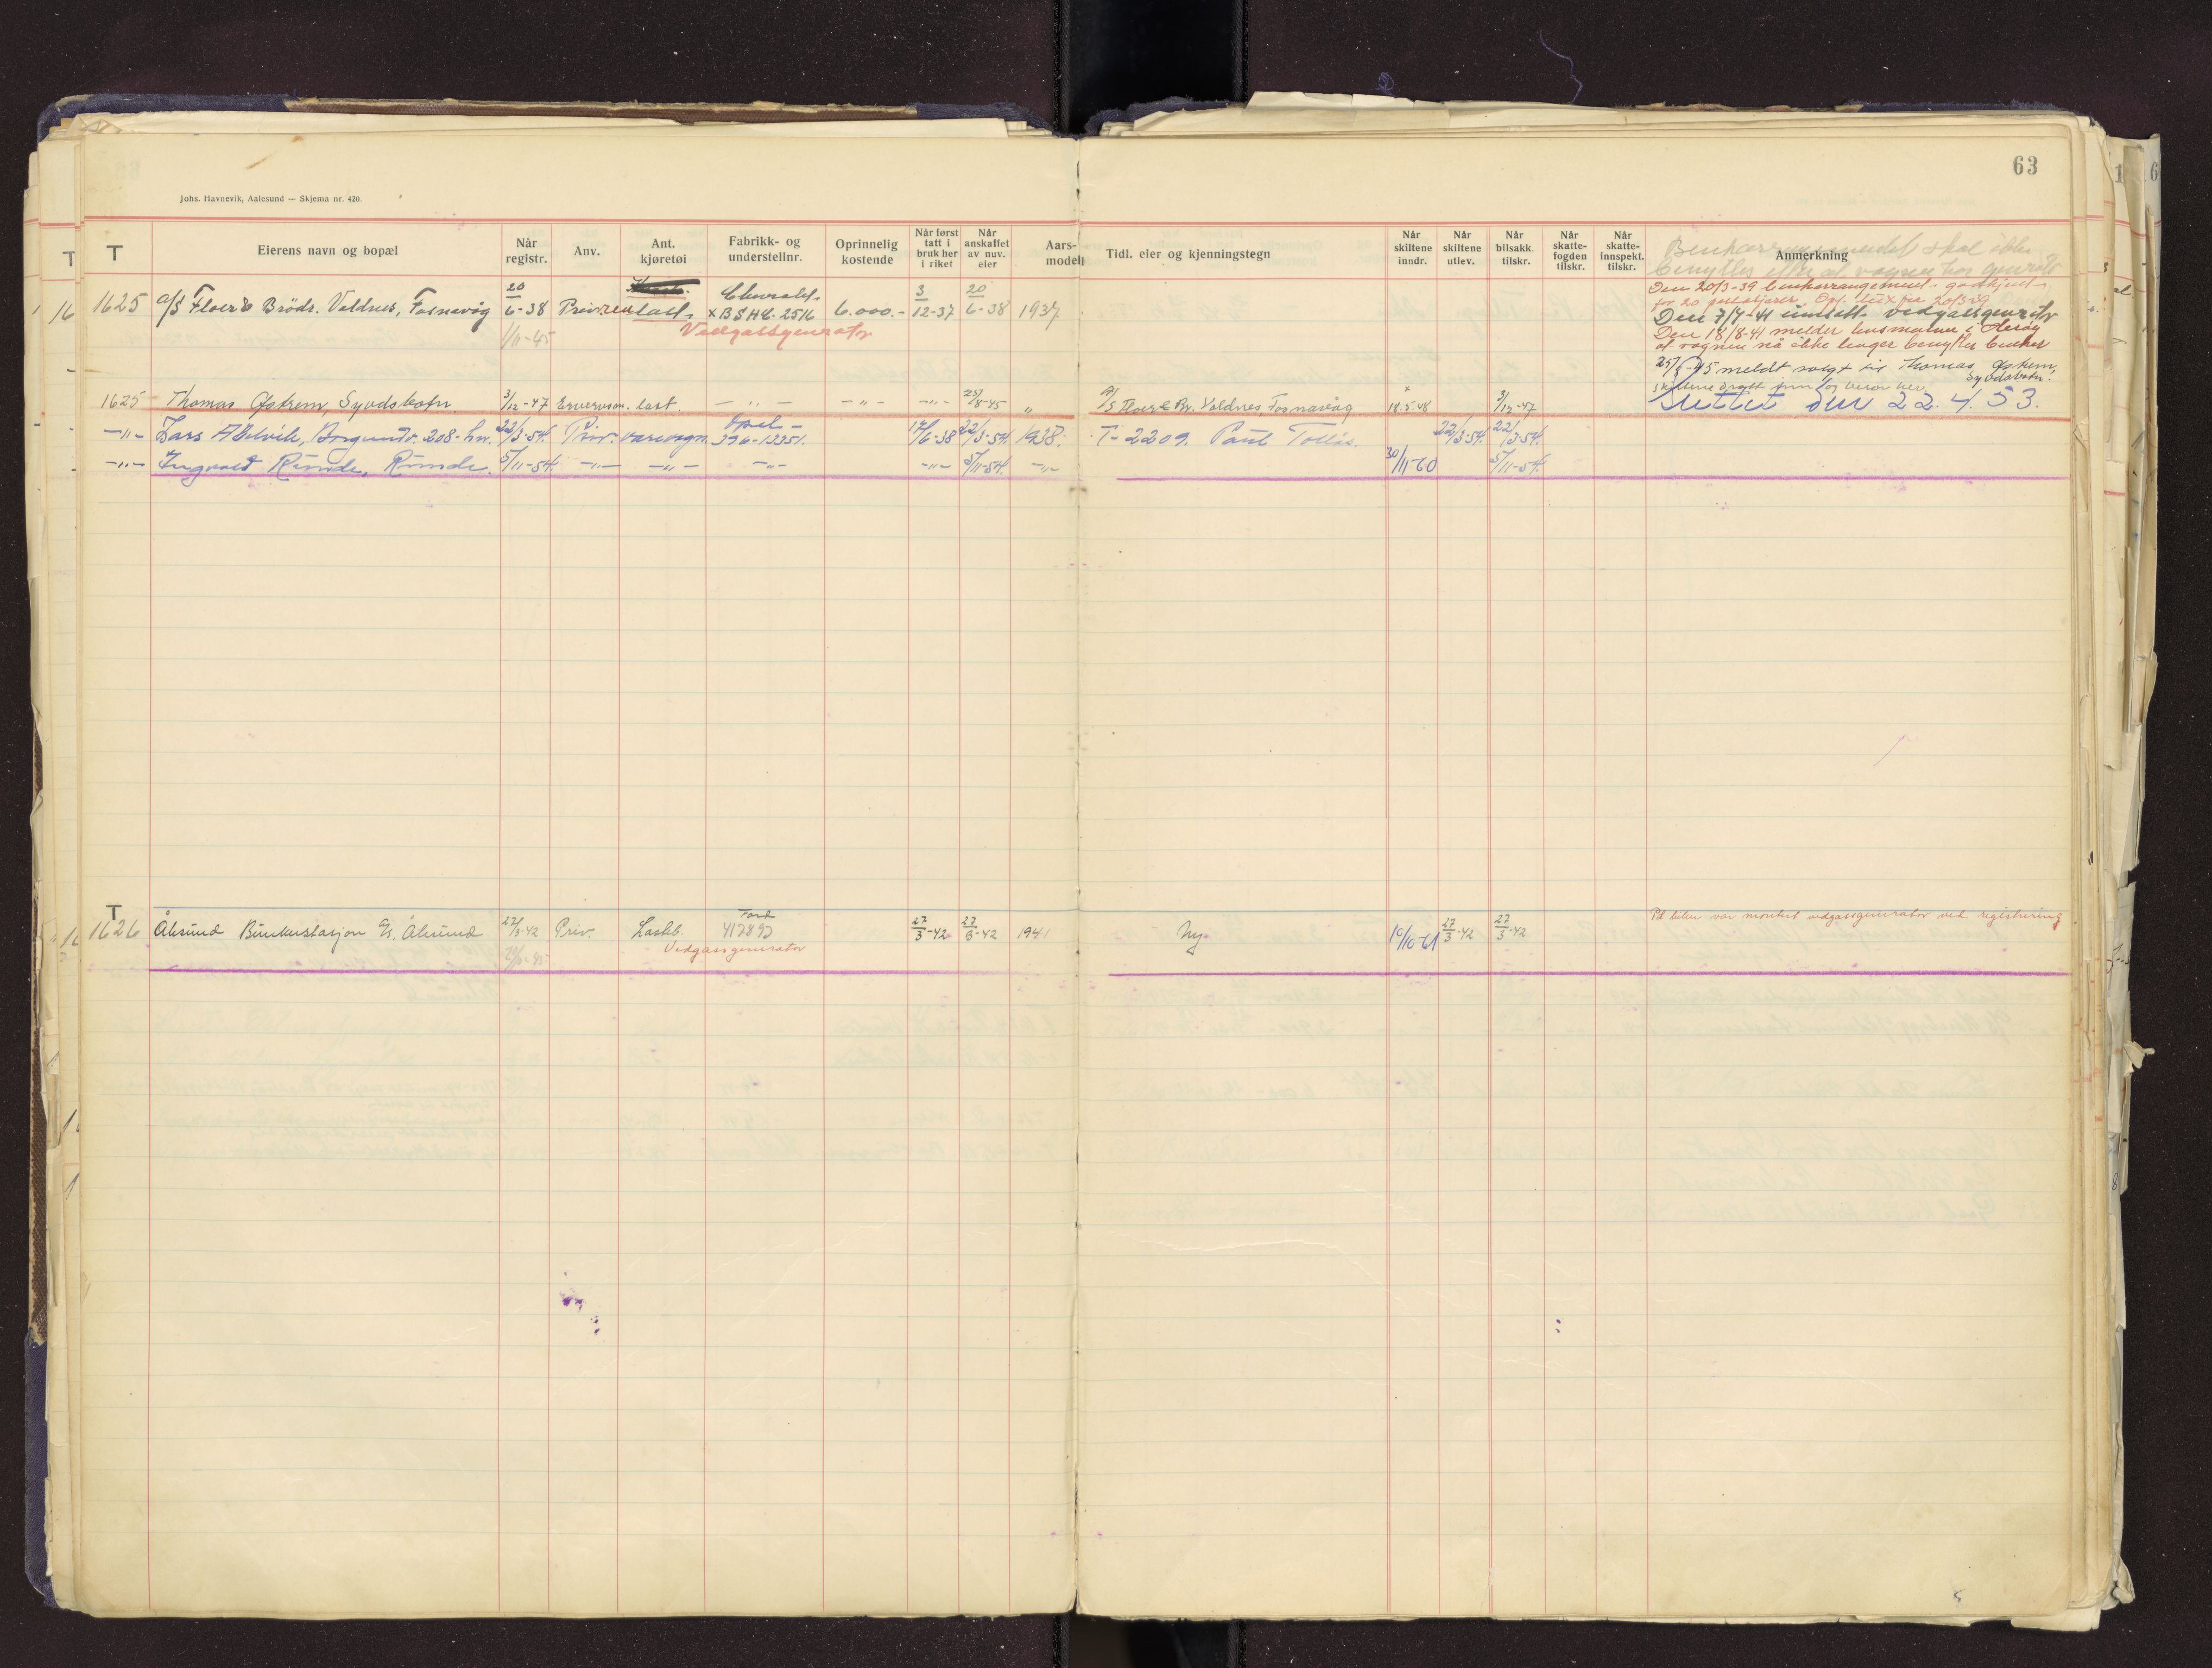 63
Johs. Havnevik, Aalesund — Skjema nr. 420.
T Eierens navn og bopæl Når registr. Anv. Ant. kjøretøi Fabrikk- og understellnr. Oprinnelig kostende Når først tatt i bruk her i riket Når anskaffet av nuv. eier Aars-modell Tidl. eier og kjenningstegn Når skiltene inndr. Når skiltene utlev. Når bilsakk. tilskr. Når skatte-fogden tilskr. Når skatte-innspekt. tilskr. Anmerkning
Benkarrangementet skal ikke
benyttes efter at vognen har
Den 20/3-39 benkarrangement godkjent
for 20 passasjerer.
1625 A/S Floer & Brödr. Voldnes, Fosnavåg 20/6-38 Priv. last. Chevrolet x BSH2.2516 6.000.- 3/12-37 20/6-38 1937
Den 7/7-41 innsatt vedgassgenerator
1/11-45 Vedgassgenerator
Den 18/8-41 melder lensmannen i Herøy
at vognen nå ikke lenger benytter benker
25/8-45 meldt solgt til Thomas Østrem, Syvdsbotn.
1625 Thomas Østrem, Syvdsbotn 3/12-47 Ervervsm. last. — " — — " — — " — 25/8-45 " A/S Floer & Br. Voldnes, Fosnavåg 18.5-48 3/12-47
Slettet den 22.4.53.
— " — Lars Aldelvik, Borgundv. 208-hv. 22/3-54. Priv. varevogn. Opel - 396-12251. 17/6-38 22/3-54. 1938. T-2209. Paul Tollås. 22/3-54. 22/3-54.
— " — Ingvald Runde, Runde. 5/11-54. — " — — " — — " — — " — 5/11-54. — " — 30/11-60 5/11-54.
T
1626 Ålesund Bunkerstasjon A/s, Ålesund 27/3-42 Priv. Lasteb. Ford 412892 27/3-42 27/3-42 1941 Ny 10/10-61 27/3-42 27/3-42 På bilen var montert vedgassgenerator ved registrering
Vedgassgenerator